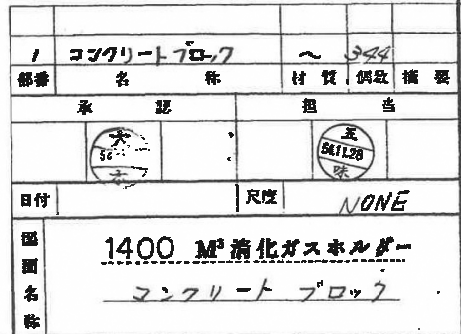 1 コンクリートブロック ～ 344
部番 名 称 材 質 個数 摘 要
承 認 担 当
五
54.11.28
味
日付 尺度 NONE
図面名称
1400 M³ 消化ガスホルダー
コンクリート ブロック